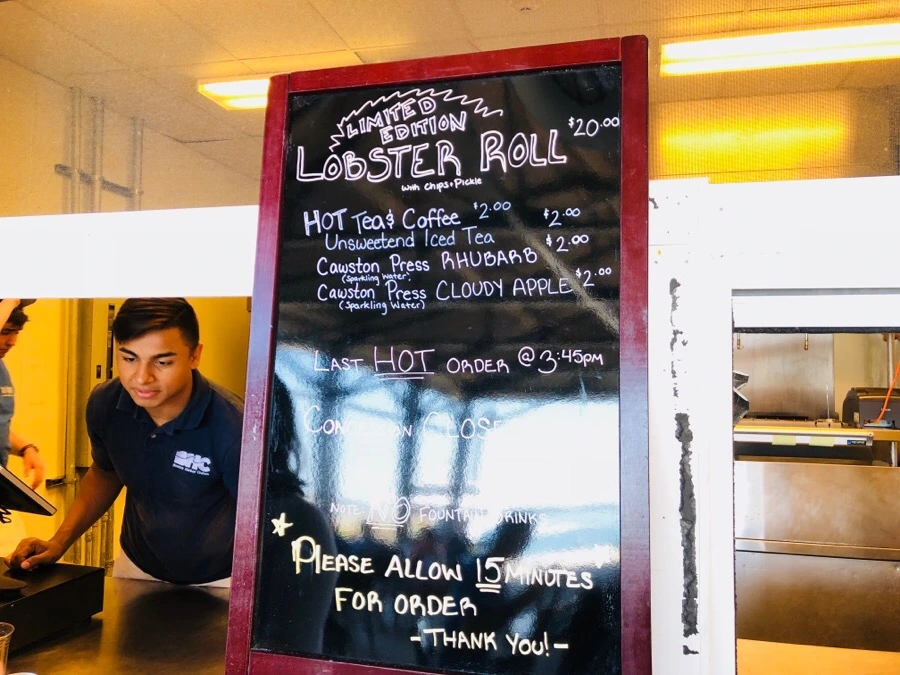 LIMITED
EDITION
LOBSTER ROLL $20.00
with chips + Pickle
HOT Tea & Coffee $2.00
Unsweetend Iced Tea $2.00
Cawston Press RHUBARB $2.00
(Sparkling Water)
Cawston Press CLOUDY APPLE $2.00
(Sparkling Water)
LAST HOT ORDER @ 3:45PM
NOTE: NO FOUNTAIN DRINKS
PLEASE ALLOW 15 MINUTES
FOR ORDER
- THANK YOU! -